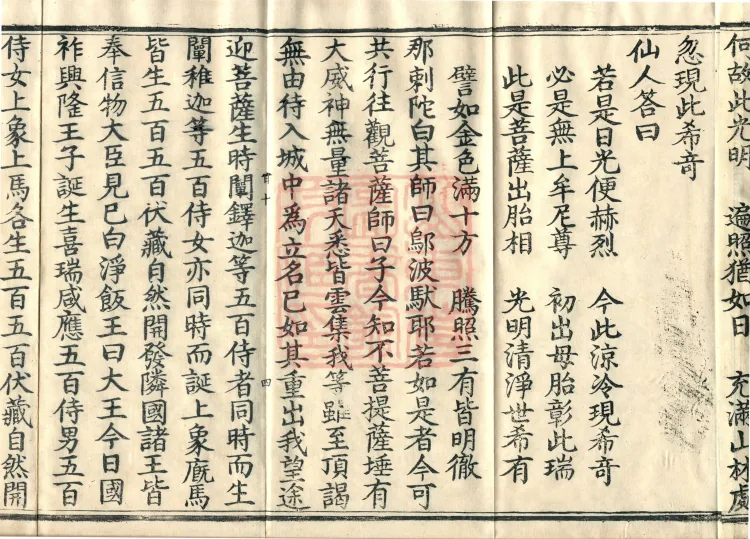 何故此光明　遍照猶如日　充滿山林處
忽現此希奇
仙人答曰
若是日光便赫烈　今此涼冷現希奇
必是無上牟尼尊　初出母胎彰此瑞
此是菩薩出胎相　光明清淨世希有
譬如金色滿十方　騰照三有皆明徹
那剌陀白其師曰鄔波馱耶若如是者今可
共行往觀菩薩師曰子今知不菩提薩埵有
大威神無量諸天悉皆雲集我等雖至頂謁
無由待入城中為立名已如其重出我望途
迎菩薩生時闡鐸迦等五百侍者同時而生
闡稚迦等五百侍女亦同時而誕上象廐馬
皆生五百五百伏藏自然開發隣國諸王皆
奉信物大臣見已白淨飯王曰大王今日國
祚興隆王子誕生喜瑞咸應五百侍男五百
侍女上象上馬各生五百五百伏藏自然開
甘十
四